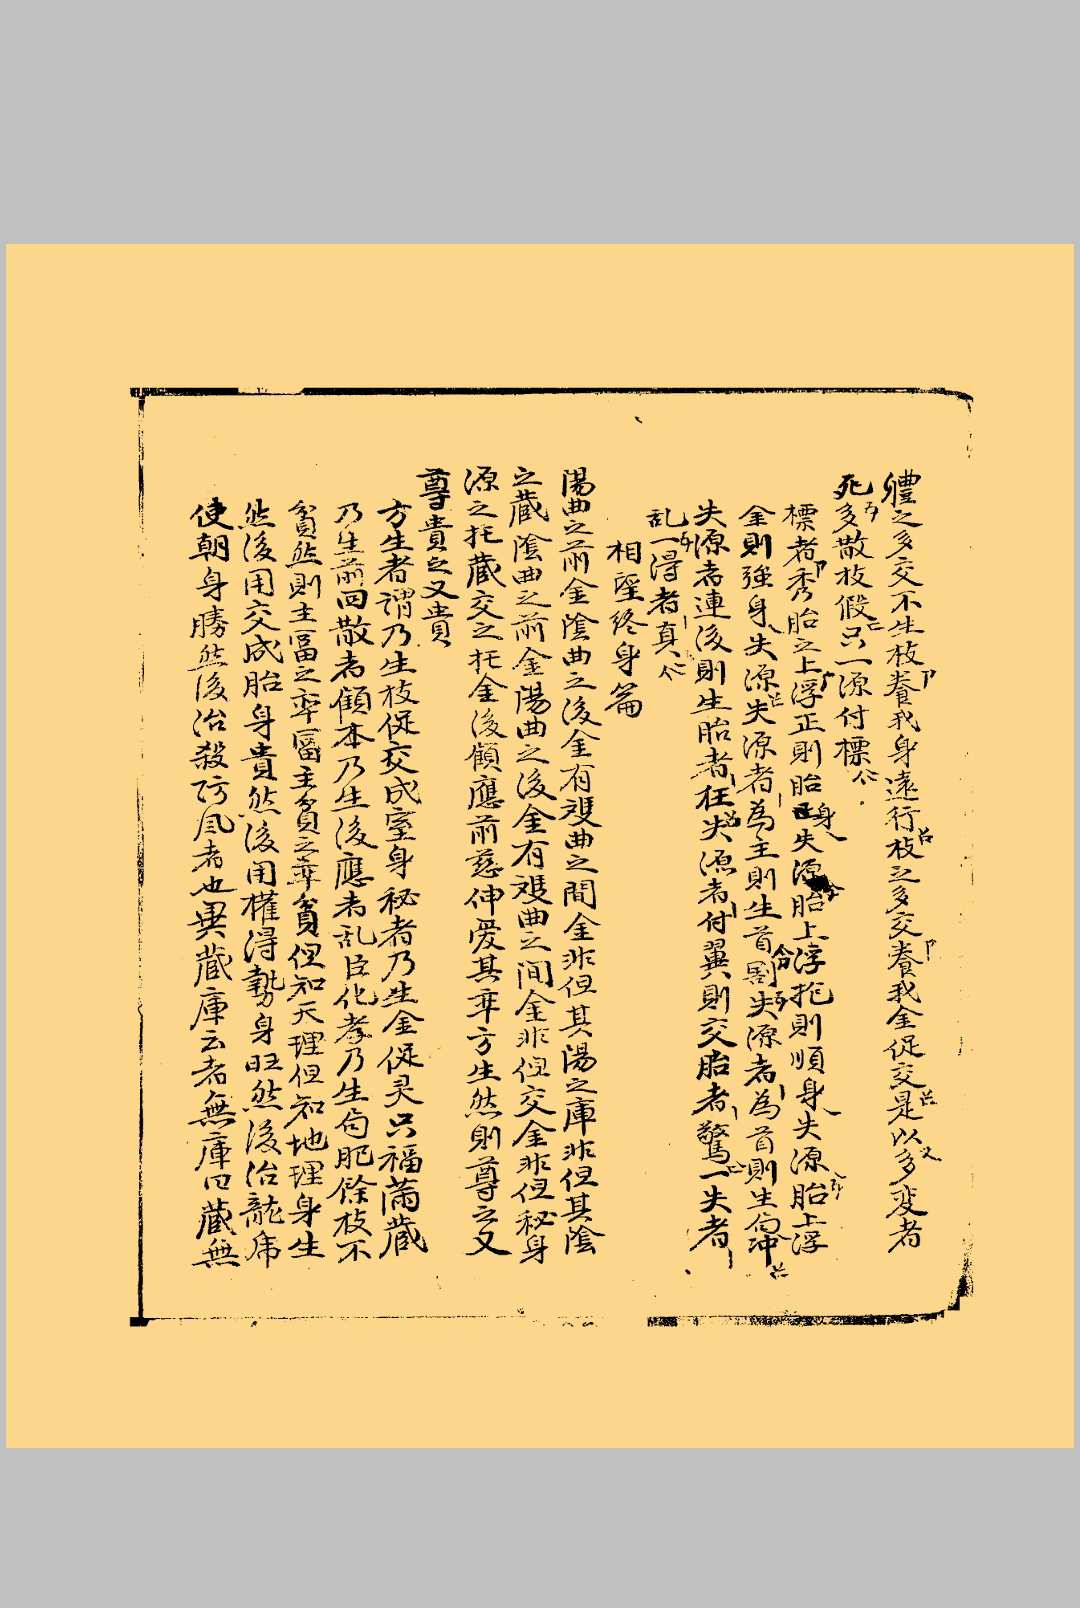 體之多交不生枝養我身遠行枝之多交養我金促交是以多变者
死多散枝假只一源付標
標者秀胎之上浮正則胎身失源胎上浮則順身失源胎上浮
金則強身失源失源者為主則生首割失源者為首則生
失源者連後則生胎者狂失源者付翼則交胎者驚一失者
乱一得者真
相望終身篇
陽曲之前金陰曲之後金有䨇曲之間金非但其陽之庫非但其陰
之蔵陰曲之前金陽曲之後金有䨇曲之间金非但交金非但秘身
源之托蔵交之托金後顧應前慈伸爱其率方生然則尊之又
尊貴之又貴
方生者謂乃生枝促交成室身秘者乃生金促灵只福滿蔵
乃生前回散者顧本乃生後應者乱臣化孝乃生句肥餘枝不
貧然則主富之率富主貧之率貧但知天理但知地理身生
然後用交成胎身貴然後用權得勢身旺然後治龍虎
使朝身勝然後治殺防風者也異蔵庫云者無庫曰蔵無